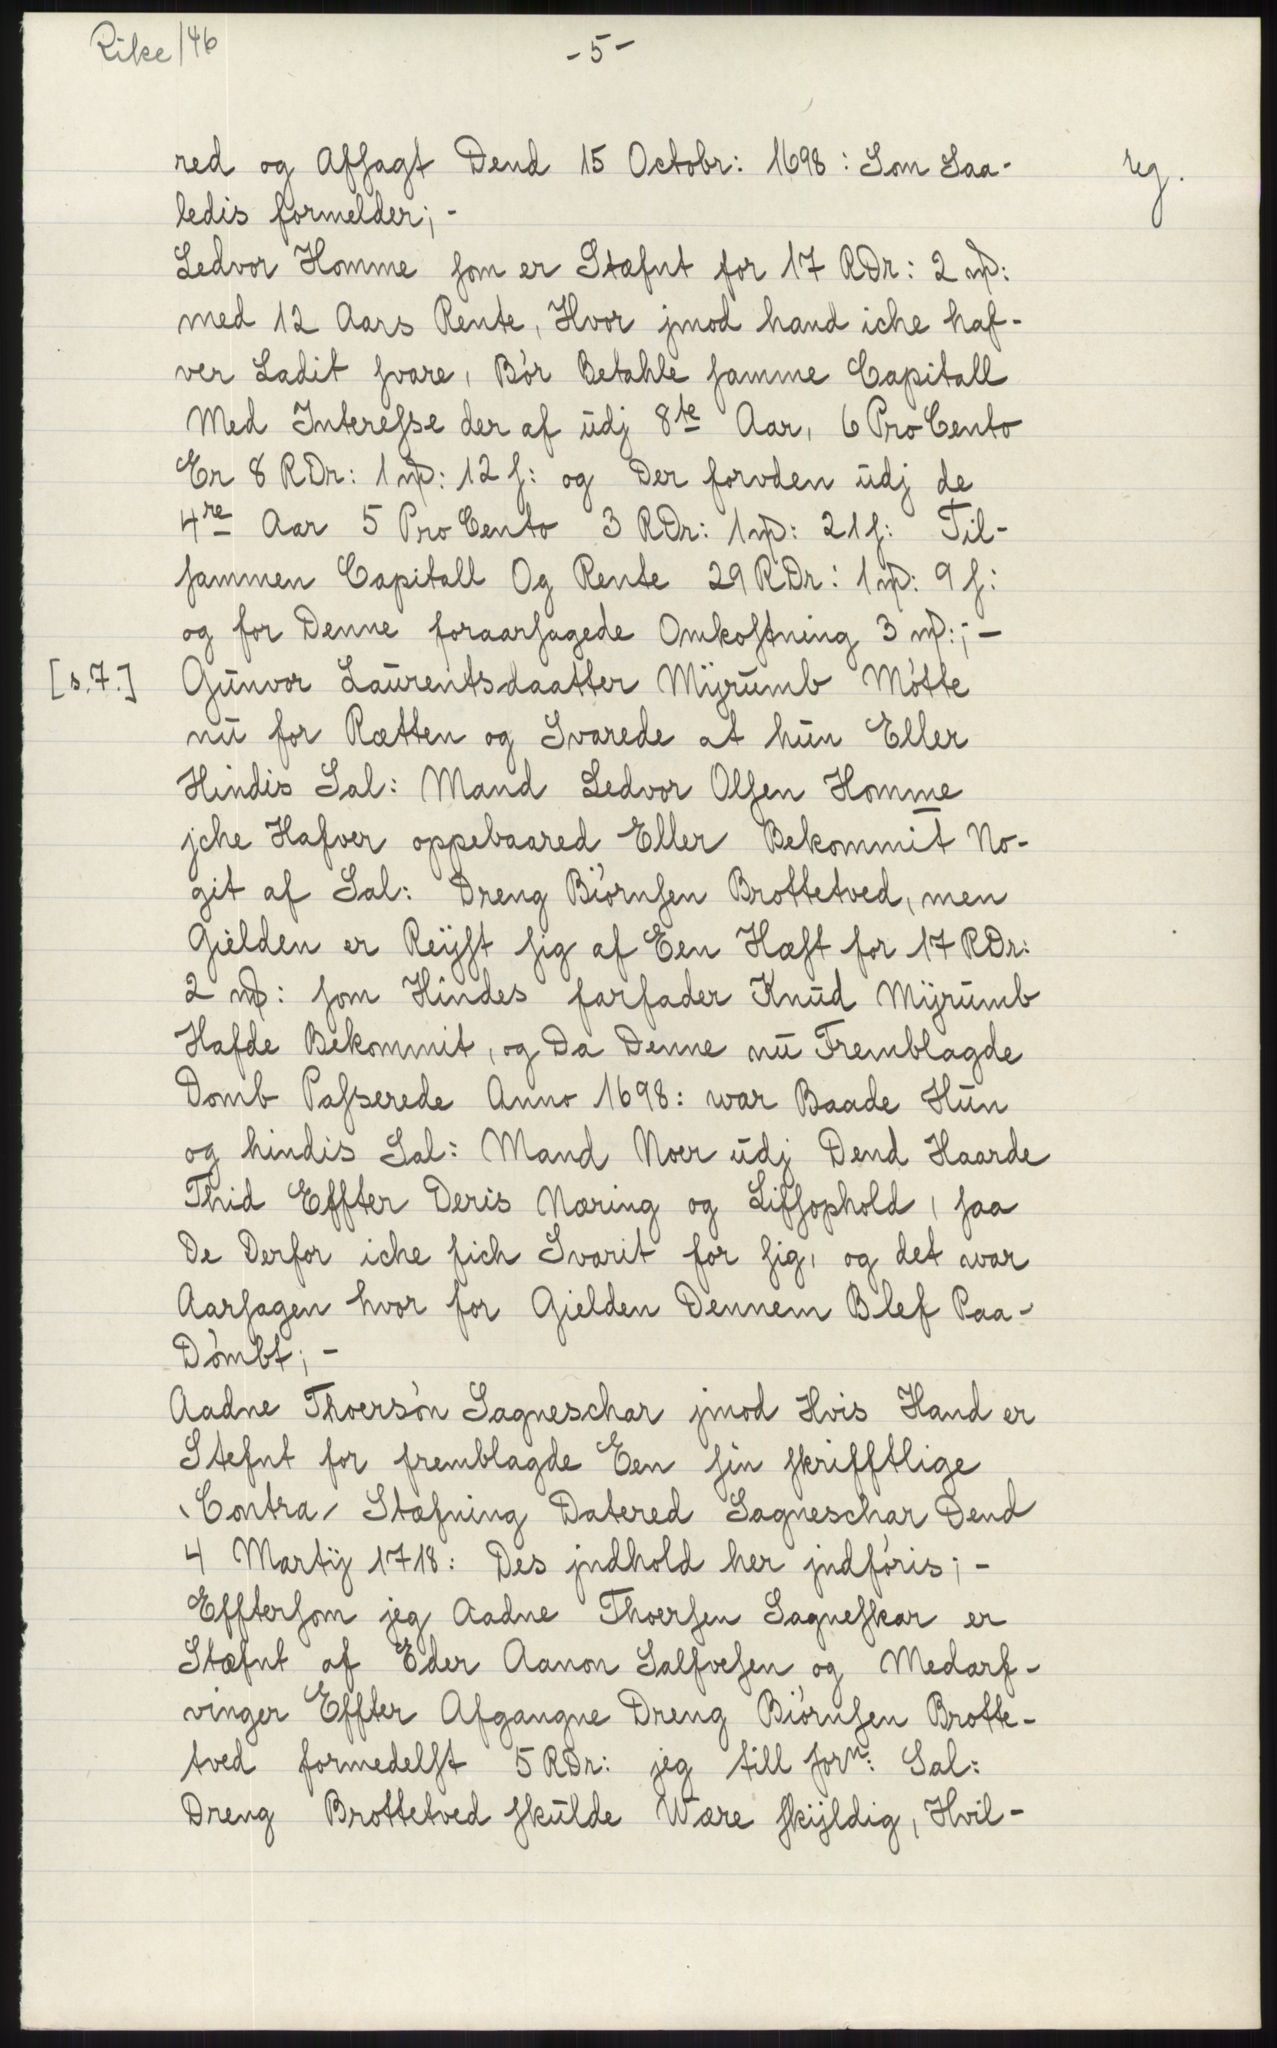 Rike/46
- 5 -
red og Afsagt Dend 15 Octobr: 1698: Som Saa- reg.
ledis formelder; -
Ledvor Homme som er Stæfnt for 17 RDr: 2 mþ:
med 12 Aars Rente, Hvor jmod hand iche haf-
ver Ladit svare, Bór Betahle samme Capitall
Med Interesse der af ūdj 8te Aar, 6 ProCento
Er 8 RDr: 1 mþ: 12 s: og Der forvden ūdj de
4re Aar 5 ProCento 3 RDr: 1 mþ: 21 s: Til-
sammen Capitall Og Rente 29 RDr: 1 mþ: 9 s:
og for Denne foraarsagede Omkostning 3 mþ:; -
[s.7.] Gūnvor Laūrentsdaatter Mÿrūmb Mótte
nū for Rætten og Svarede at hūn Eller
Hindis Sal: Mand Ledvor Olsen Homme
jche Hafver oppebaared Eller Bekommit No-
git af Sal: Dreng Biórnsen Brottetved, men
Gielden er Reÿst sig af Een Hæst for 17 RDr:
2 mþ: som Hindes farfader Knūd Mÿrūmb
Hafde Bekommit, og Da Denne nū Fremblagde
Domb Passerede Anno 1698: war Baade Hūn
og hindis Sal: Mand Noer ūdj Dend Haarde
Thid Effter Deris Næring og Lifsophold, saa
De Derfor iche fich Svarit for sig, og det war
Aarsagen hvor for Gielden Dennem Blef Paa-
Dómbt; -
Aadne Thoersón Sagneschar jmod Hvis Hand er
Stefnt for fremblagde Een sin skrifftlige
Contra Stæfning Datered Sagneschar Dend
4 Martÿ 1718: Des jndhold her jndfóris; -
Efftersom jeg Aadne Thoersen Sagneskar er
Stæfnt af Eder Aanon Salfvesen og Medarf-
vinger Effter Afgangne Dreng Biórnsen Brotte-
tved formedelst 5 RDr: jeg till forn: Sal:
Dreng Brottetved skulde Wære skÿldig, Hvil-